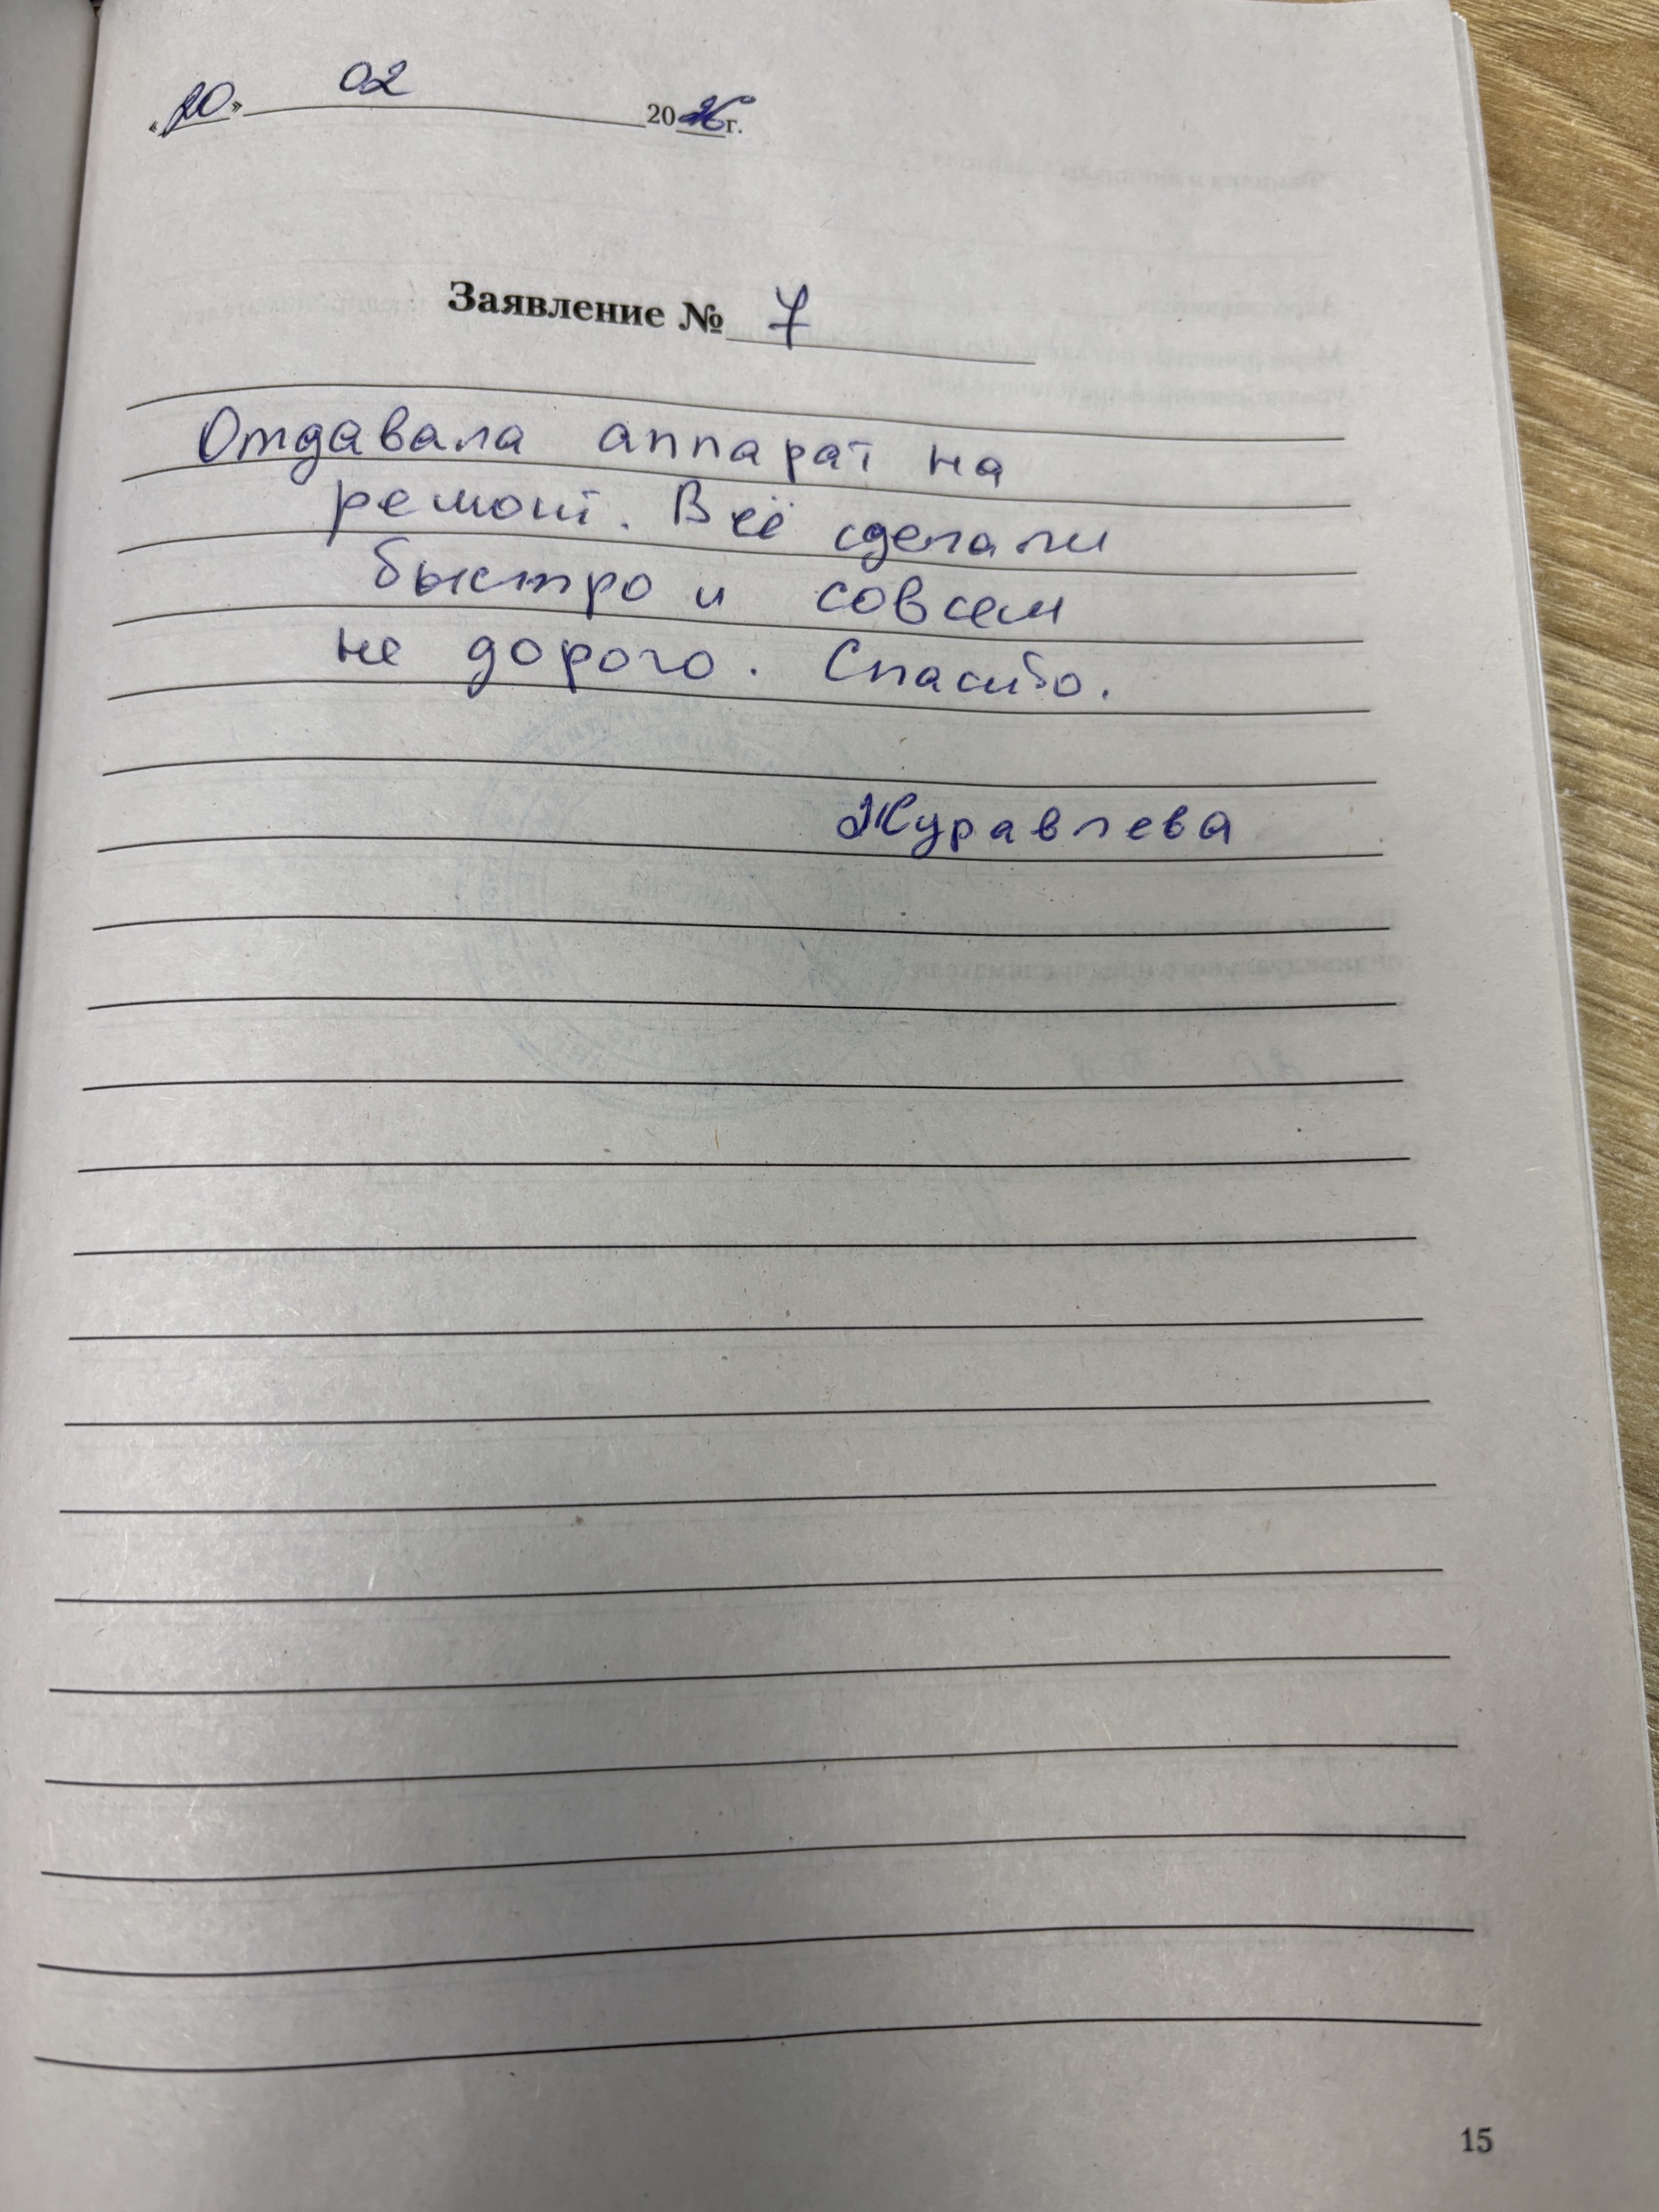 «20» 02 2026г.
Заявление № 7
Отдавала аппарат на
ремонт. Всё сделали
быстро и совсем
не дорого. Спасибо.
Журавлева
15